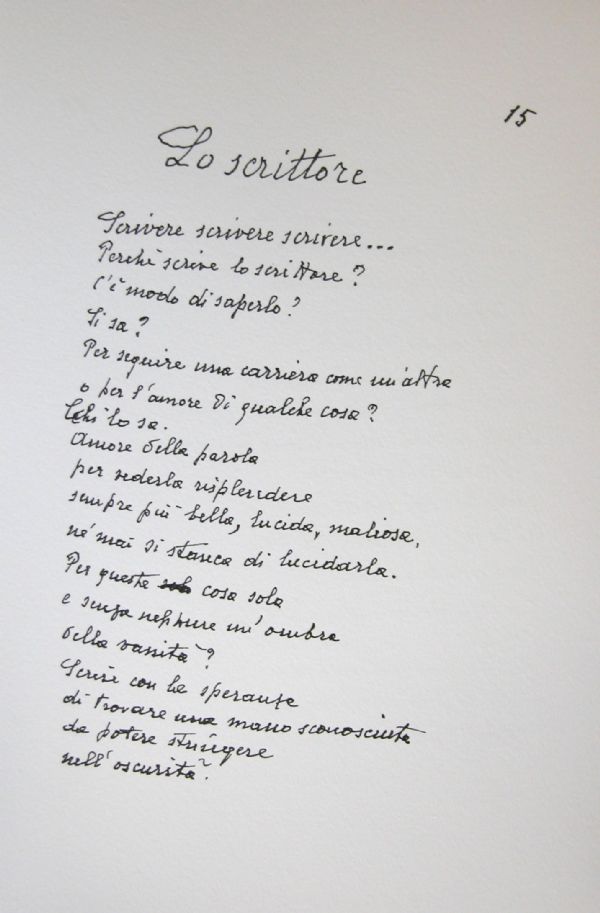 15
Lo scrittore
Scrivere scrivere scrivere...
Perchè scrive lo scrittore?
C'è modo di saperlo?
Si sa?
Per seguire una carriera come un'altra
o per l'amore di qualche cosa?
Chi lo sa.
Amore della parola
per vederla risplendere
sempre più bella, lucida, maliosa,
nè mai si stanca di lucidarla.
Per questa cosa sola
e senza neppure un'ombra
della vanità?
Scrive con la speranza
di trovare una mano sconosciuta
da potere stringere
nell'oscurità?